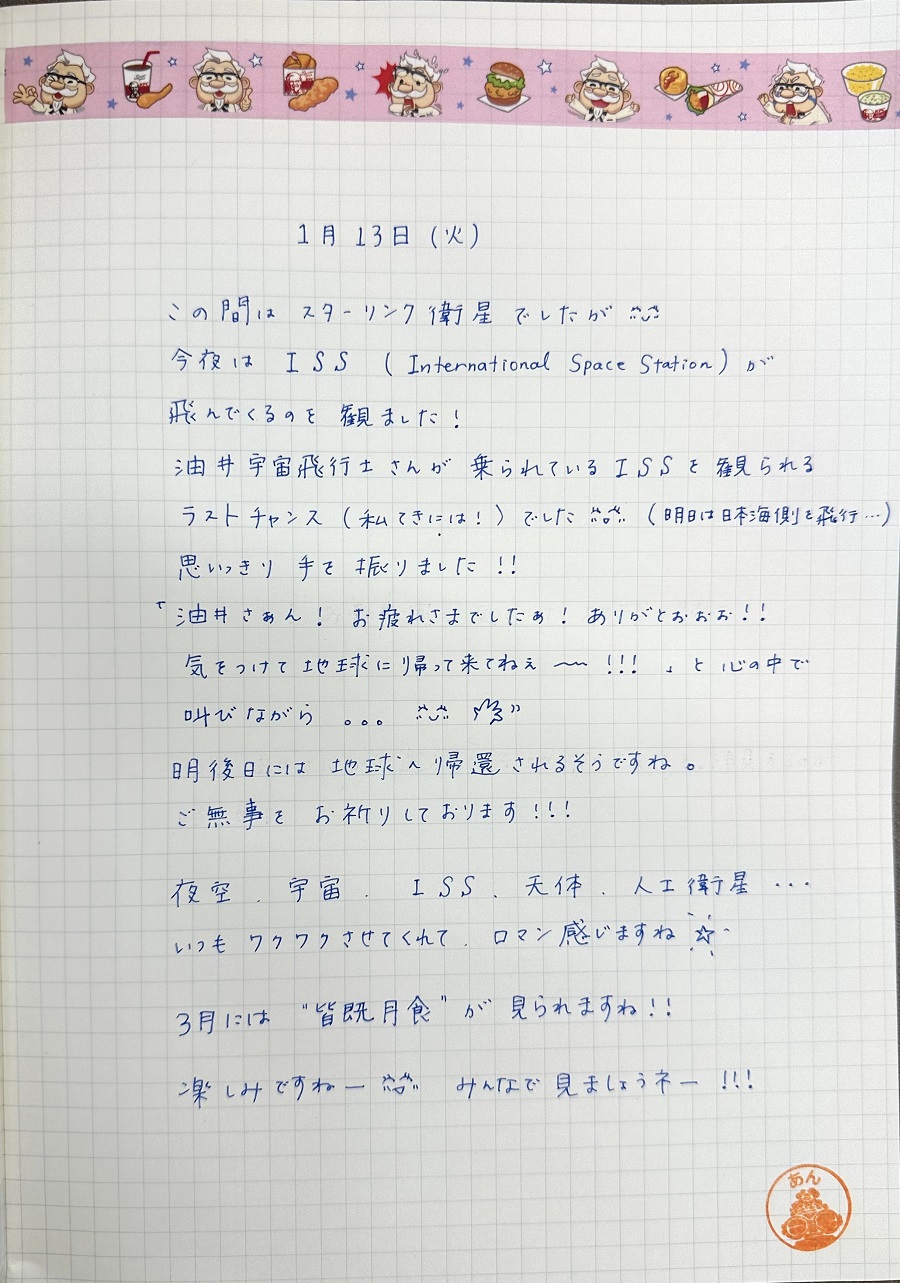 1月13日(火)
この間は スターリンク衛星 でしたが
今夜は ISS (International Space Station) が
飛んでくるのを 観ました!
油井宇宙飛行士さんが 乗られている ISS を 観られる
ラストチャンス (私てきには!) でした (明日は日本海側を飛行…)
思いっきり 手を 振りました !!
「油井さぁん! お疲れさまでしたぁ! ありがとおぉぉ!!
気をつけて 地球に 帰って来てねぇ 〜 !!! 」と 心の中で
叫びながら 。。。
明後日には 地球へ 帰還 されるそうですね。
ご無事を お祈りしております!!!
夜空、宇宙、ISS、天体、人工衛星…
いつも ワクワクさせてくれて、ロマン感じますね☆
3月には "皆既月食" が 見られますね!!
楽しみですねー みんなで 見ましょうネー !!!
あん